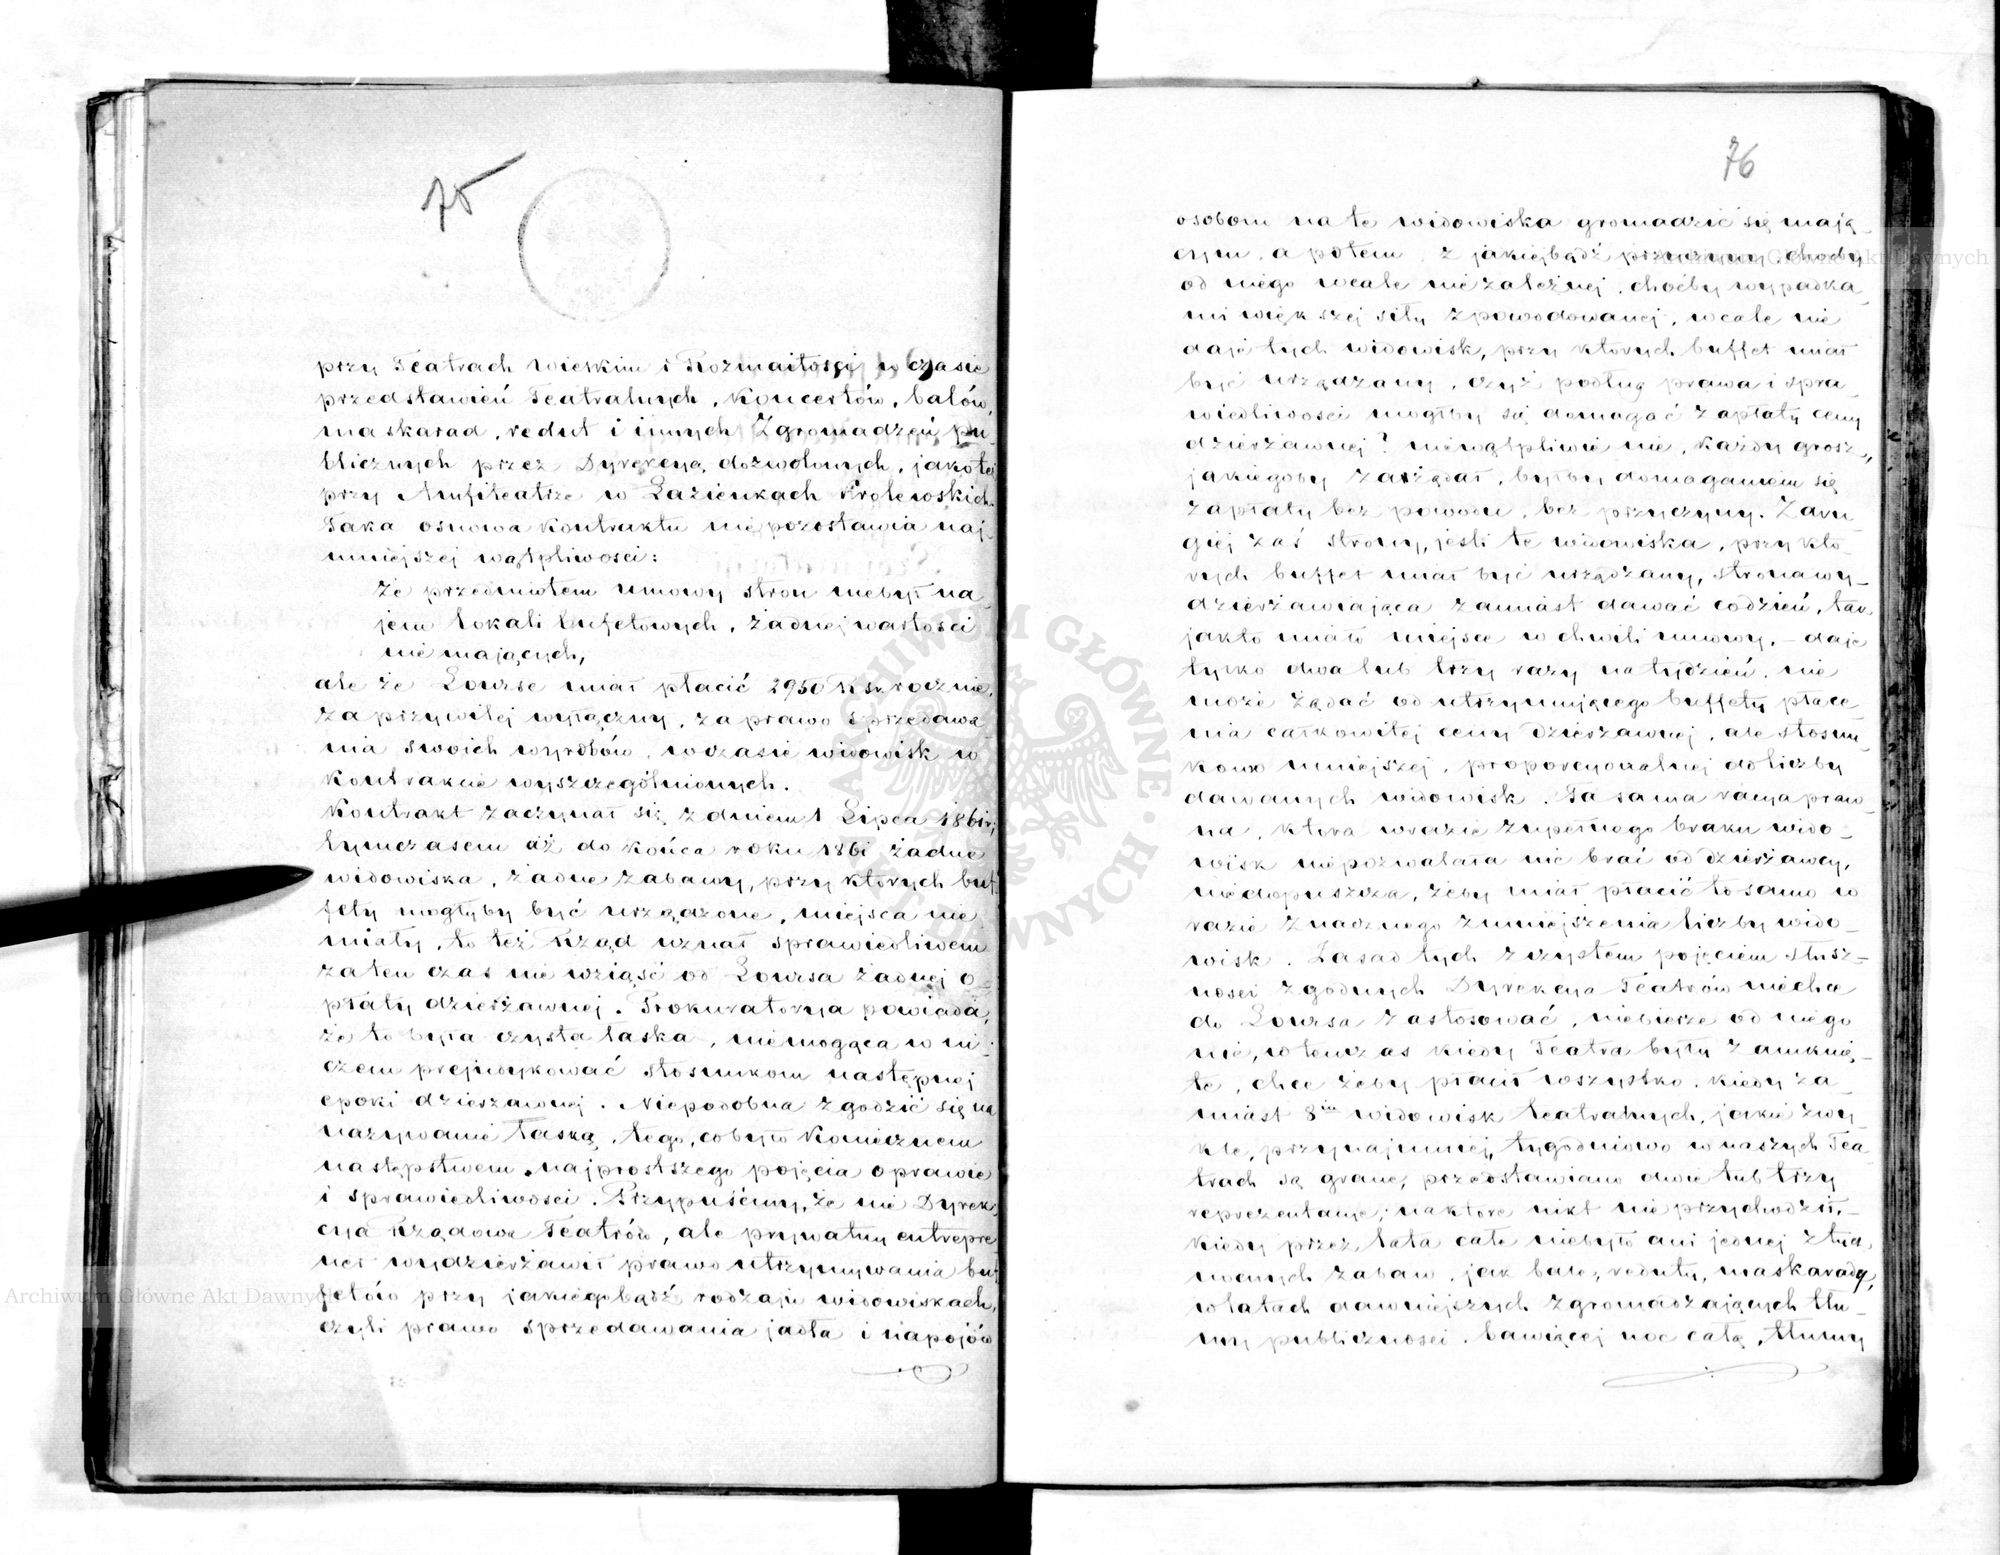 75
przy Teatrach Wielkim i Rozmaitości, w czasie
przedstawień Teatralnych, Koncertów, balów,
maskarad, redut i innych Zgromadzeń pu-
blicznych przez Dyrekcyą dozwolonych, jakoteż
przy Amfiteatrze w Łazienkach Królewskich.
Taka osnowa Kontraktu nie pozostawia naj-
mniejszej wątpliwości:
że przedmiotem umowy stron niebył na-
jem lokali bufetowych, żadnej wartości
nie mających,
ale że Lourse miał płacić 2950 Rsr. rocznie,
za przywilej wyłączny, za prawo sprzedawa
nia swoich wyrobów, w czasie widowisk w
Kontrakcie wyszczególnionych.
Kontrakt zaczynał się z dniem 1 Lipca 1861 r,
tymczasem aż do końca roku 1861 żadne
widowiska, żadne zabawy, przy których buf-
fety mogłyby być urządzone, miejsca nie
miały, to też Rząd uznał sprawiedliwem
za ten czas nie wziąść od Loursa żadnej o-
płaty dzierżawnej. Prokuratorya powiada,
że to była czysta łaska, niemogąca w ni-
czem prejudykować stosunkom następnej
epoki dzierżawnej. Niepodobna zgodzić się na
nazywanie łaską, tego, co było koniecznem
następstwem najprostszego pojęcia o prawie
i sprawiedliwości. Przypuśćmy, że nie Dyrek-
cya Rządowa Teatrów, ale prywatny entrepre
ner wydzierżawił prawo utrzymywania bu-
fetów przy jakiegobądź rodzaju widowiskach,
czyli prawo sprzedawania jadła i napojów
76
osobom na te widowiska gromadzić się mają-
cym, a potem, z jakiejbądź przyczyny, choćby
od niego wcale niezależnej, choćby wypadka-
mi większej siły spowodowanej, wcale nie
daje tych widowisk, przy których buffet miał
być urządzany, czyż podług prawa i spra-
wiedliwości mógłby się domagać zapłaty ceny
dzierżawnej? niewątpliwie nie, każdy grosz,
jakiegoby zażądał, byłby domaganiem się
zapłaty bez powodu, bez przyczyny. Z dru-
giej zaś strony, jeśli te widowiska, przy któ-
rych buffet miał być urządzany, strona wy-
dzierżawiająca zamiast dawać codzień, tak
jak to miało miejsce w chwili umowy, – daje
tylko dwa lub trzy razy na tydzień, nie
może żądać od utrzymującego buffety płace-
nia całkowitej ceny dzierżawnej, ale stosun-
kowo mniejszej, proporcyonalnej do liczby
dawanych widowisk. Ta sama racya praw-
na, która w razie zupełnego braku wido-
wisk niepozwalała nic brać od dzierżawcy,
niedopuszcza, żeby miał płacić to samo w
razie znacznego zmniejszenia liczby wido-
wisk. Zasad tych z czystem pojęciem słusz-
ności zgodnych Dyrekcya Teatrów niechce
do Loursa zastosować, niebierze od niego
nic, wtenczas kiedy Teatra były zamknię-
te, chce żeby płacił wszystko, kiedy za-
miast 8iu widowisk teatralnych, jakie zwy-
kle, przynajmniej, tygodniowo w naszych Tea-
trach są grane, przedstawiano dwie lub trzy
reprezentacye, na które nikt nie przychodził, –
kiedy przez lata całe niebyło ani jednej z tyd.
wanych zabaw, jak bale, reduty, maskarady,
w latach dawniejszych zgromadzających tłu-
my publiczności, bawiącej noc całą, tłumy
ARCHIWUM GŁÓWNE AKT DAWNYCH
Archiwum Główne Akt Dawnych
Archiwum Główne Akt Dawnych